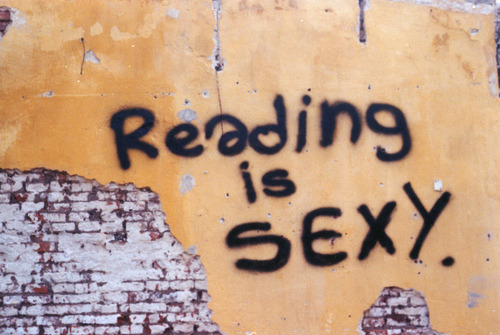 Reading
is
SEXY.